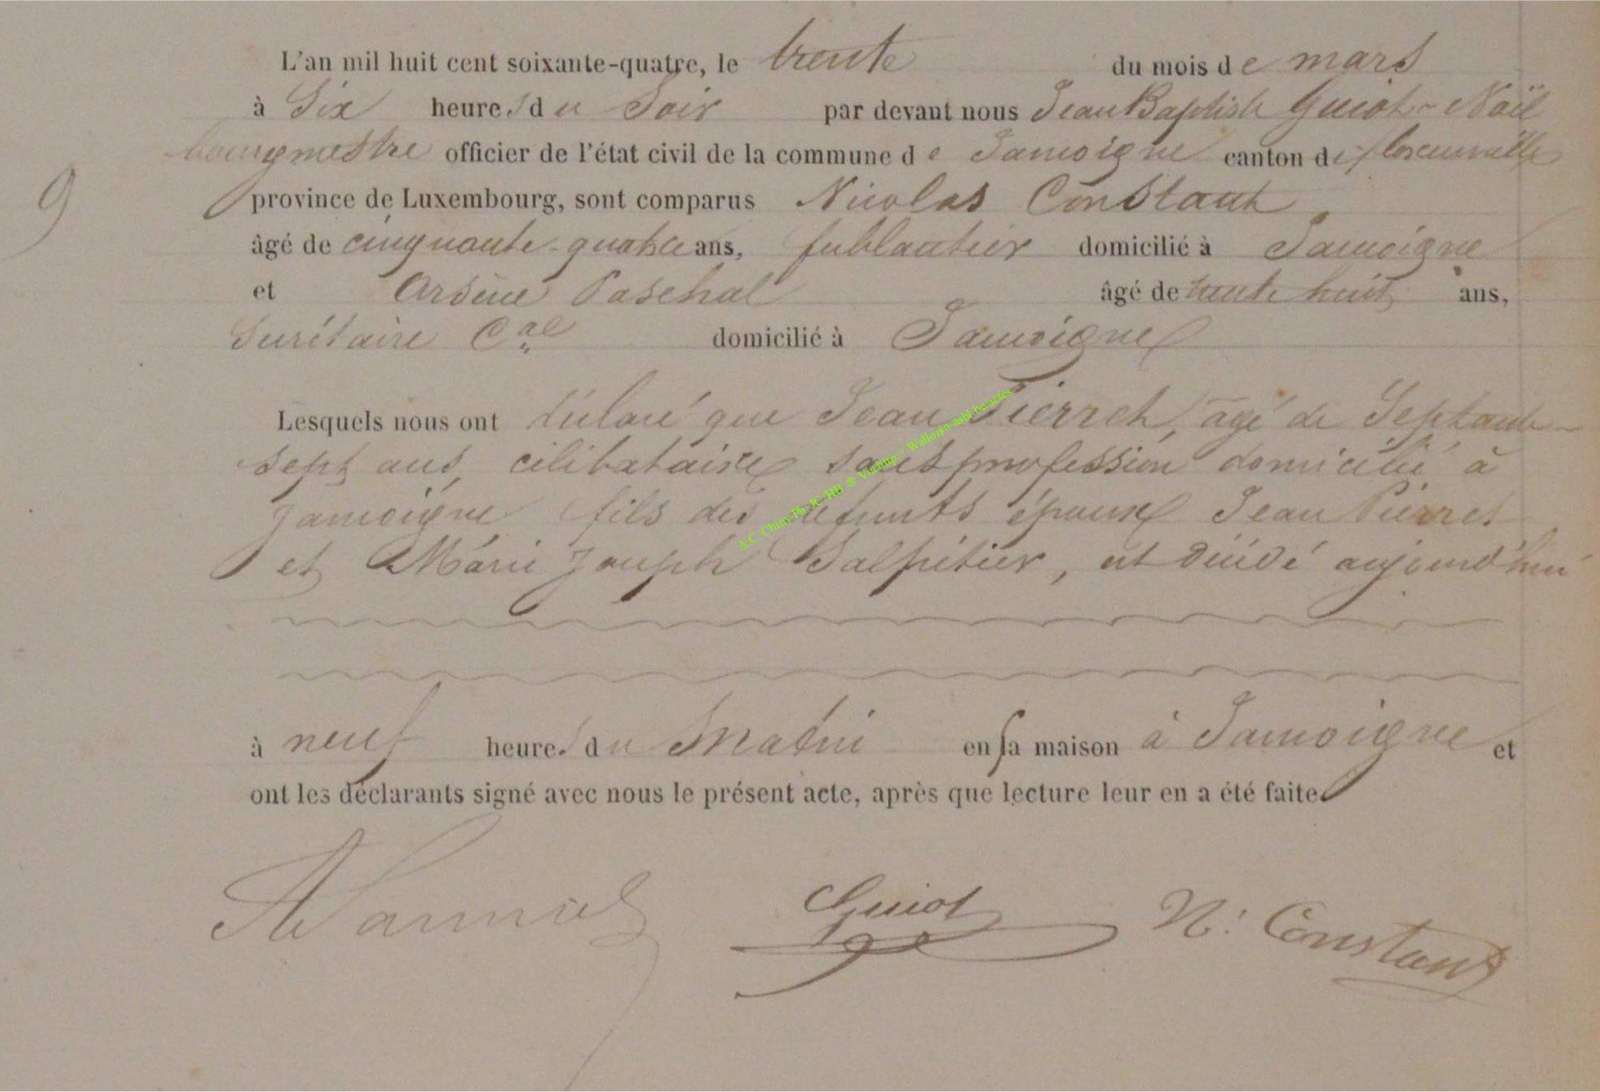 L'an mil huit cent soixante-quatre, le trente du mois de mars
à Six heures du Soir par devant nous Jean Baptiste Guiot-Noël
bourgmestre officier de l'état civil de la commune de Jamoigne canton de florenville
province de Luxembourg, sont comparus Nicolas Constant
9
âgé de cinquante-quatre ans, ferblantier domicilié à Jamoigne
et Arsène Paschal âgé de trente huit ans,
Secrétaire Cal domicilié à Jamoigne
Lesquels nous ont déclaré que Jean Pierret, âgé de Septante-
sept ans, célibataire sans profession domicilié à
Jamoigne fils des défunts époux Jean Pierret
et Marie Joseph Salpétier, est décédé aujourd'hui
à neuf heures du Matin en sa maison à Jamoigne et
ont les déclarants signé avec nous le présent acte, après que lecture leur en a été faite.
Guiot N. Constant